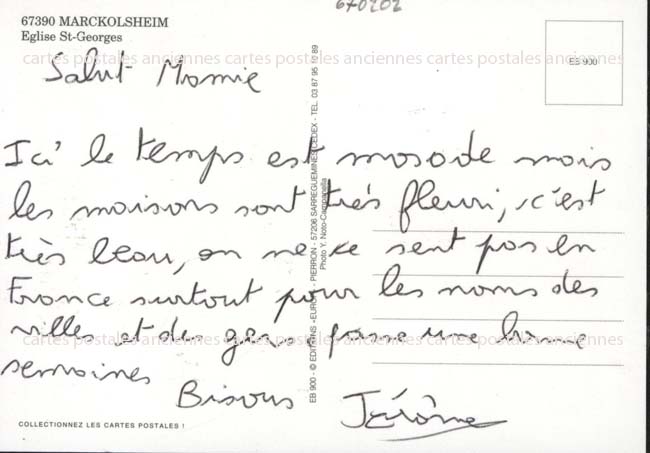 670202
67390 MARCKOLSHEIM
Eglise St-Georges
EB 900
cartes postales anciennes cartes postales anciennes cartes postales anciennes
Salut Mamie
Ici le temps est mosade mais
les maisons sont très fleuri, c'est
très beau, on ne se sent pas en
France surtout pour les noms des
villes et des gens passe une bonne
cartes postales anciennes cartes postales anciennes cartes postales anciennes
semaines
Bisous Jérôme
EB 900 - © EDITIONS - EUROP - PIERRON - 57206 SARREGUEMINES CEDEX - TEL. 03 87 95 10 89
Photo Y. Noto-Campanella
COLLECTIONNEZ LES CARTES POSTALES !